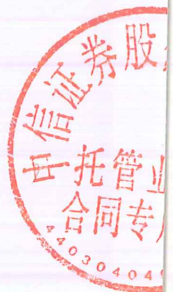 中信证券股
托管业
合同专
4403040